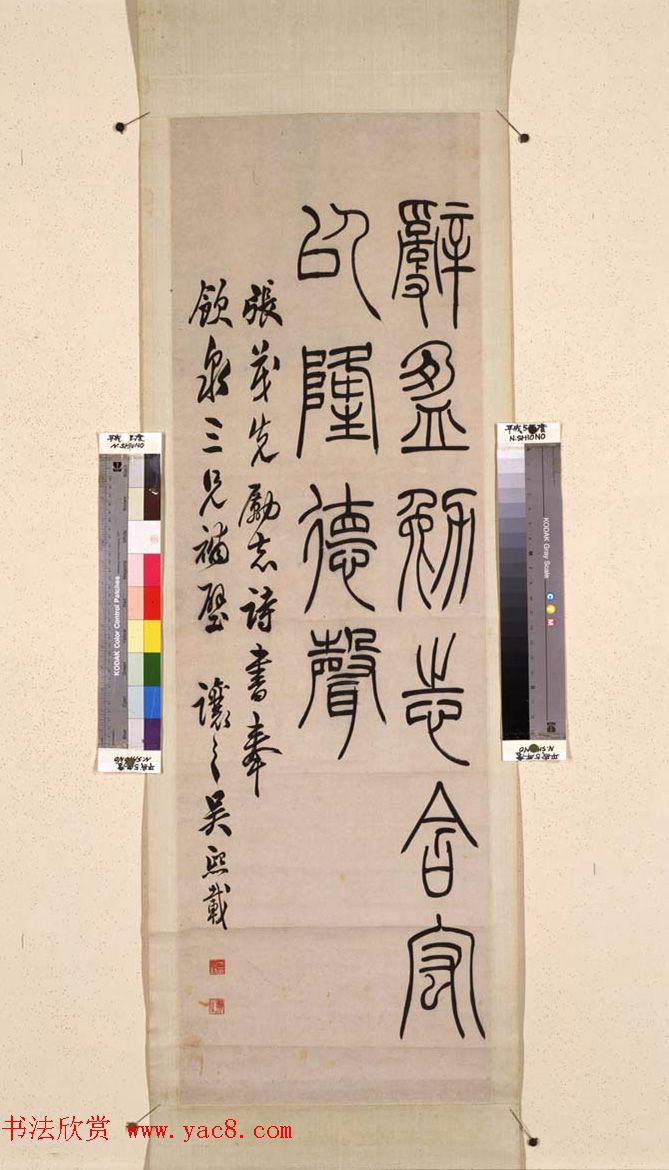 辭盈勉志含宏
以隆德聲
張茂先勵志詩書奉
泉三兄補壁 讓之吳熙載
N.SHIONO
KODAK Color Control Patches
N.SHIONO
平成5年度
N.SHIONO
KODAK Gray Scale
C Y M
N.SHIONO
书法欣赏 www.yac8.com